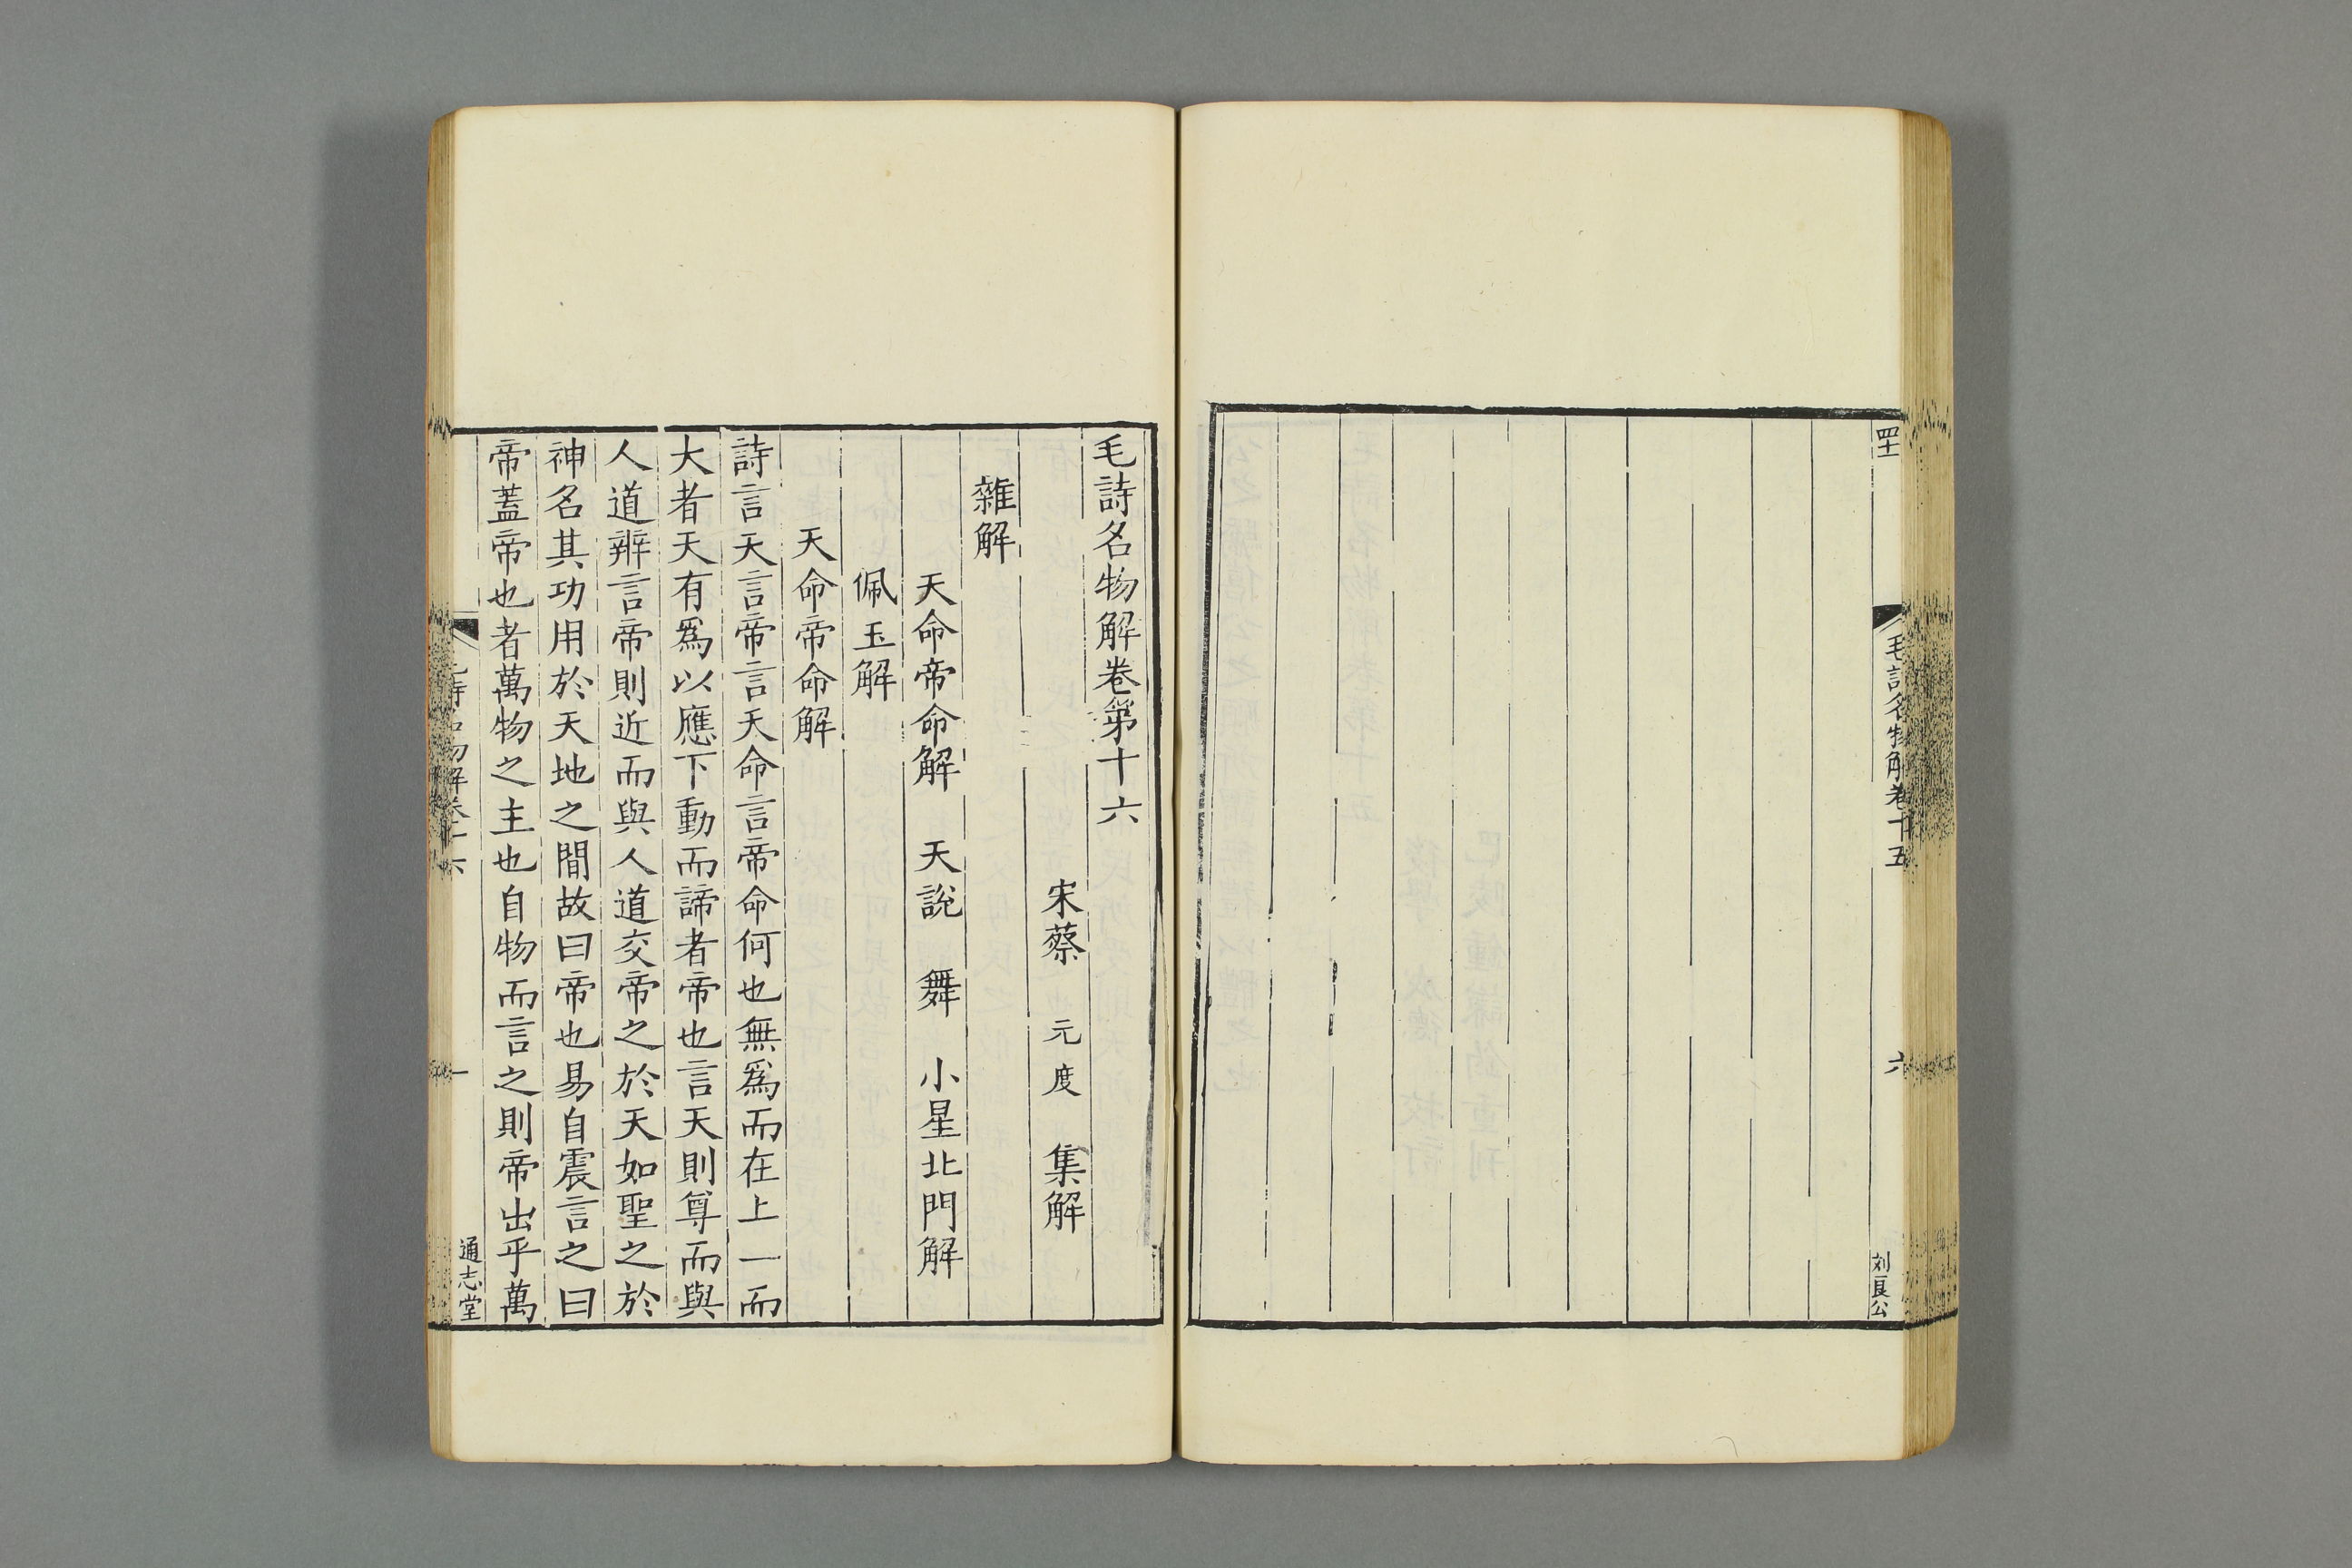 毛詩名物解卷十五
六
刘良公
毛詩名物解卷第十六
宋蔡 元度 集解
雜解
天命帝命解 天說 舞 小星北門解
佩玉解
天命帝命解
詩言天言帝言天命言帝命何也無爲而在上一而
大者天有爲以應下動而諦者帝也言天則尊而與
人道辨言帝則近而與人道交帝之於天如聖之於
神名其功用於天地之間故曰帝也易自震言之曰
帝蓋帝也者萬物之主也自物而言之則帝出乎萬
毛詩名物解卷十六
一
通志堂